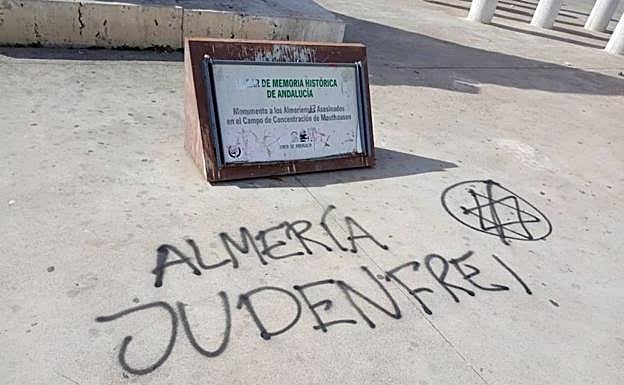 LUGAR DE MEMORIA HISTÓRICA
DE ANDALUCÍA
Monumento a los Almerienses Asesinados
en el Campo de Concentración de Mauthausen
JUNTA DE ANDALUCIA
ALMERÍA
JUDENFREI